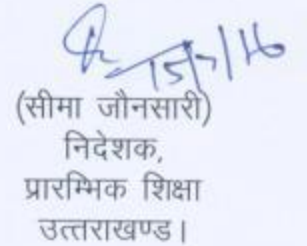 15/7/16
(सीमा जौनसारी)
निदेशक,
प्रारम्भिक शिक्षा
उत्तराखण्ड।